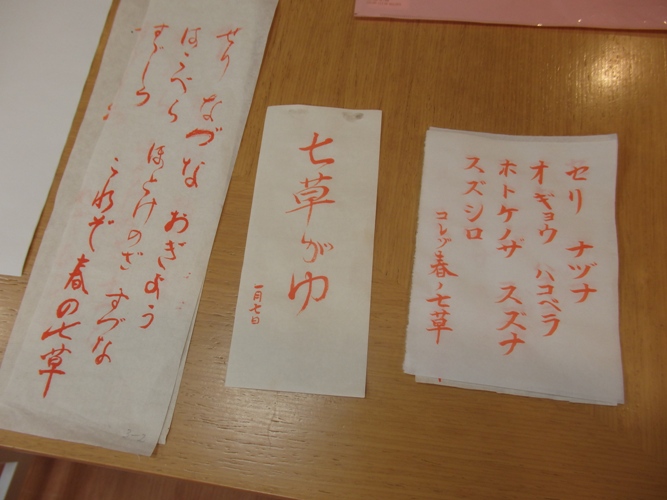 セリ ナヅナ
オギョウ ハコベラ
ホトケノザ スズナ
スズシロ
コレゾ春ノ七草
七草がゆ
一月七日
せり なづな おぎよう
はこべら ほとけのざ すづな
すゞしろ これぞ 春の七草